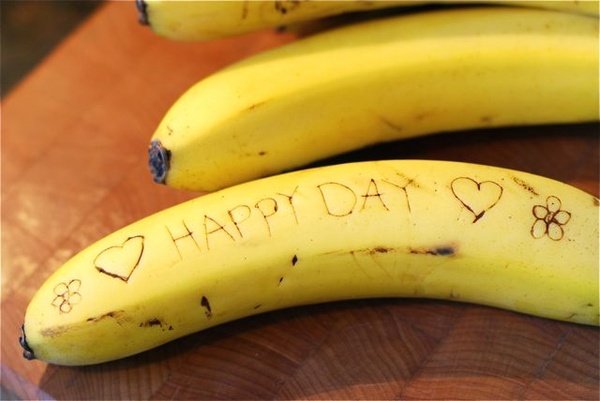 HAPPY DAY